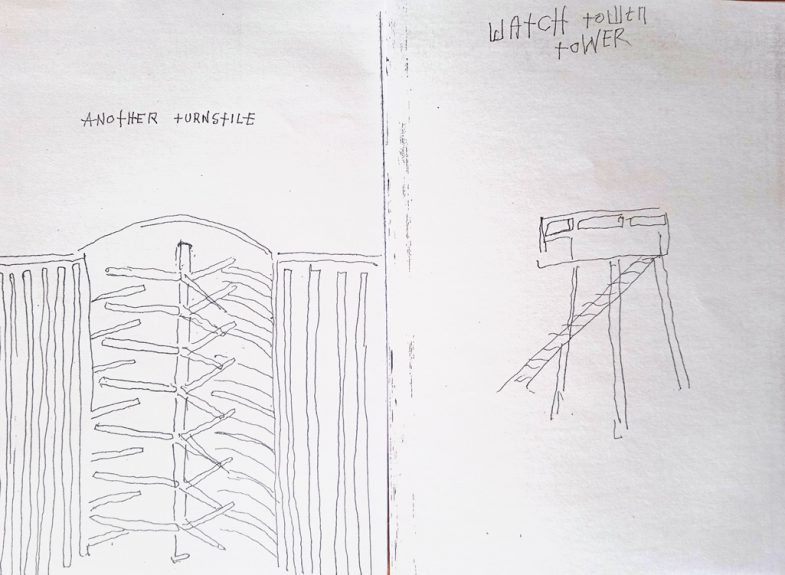 ANOTHER TURNSTILE
WATCH TOWER
TOWER